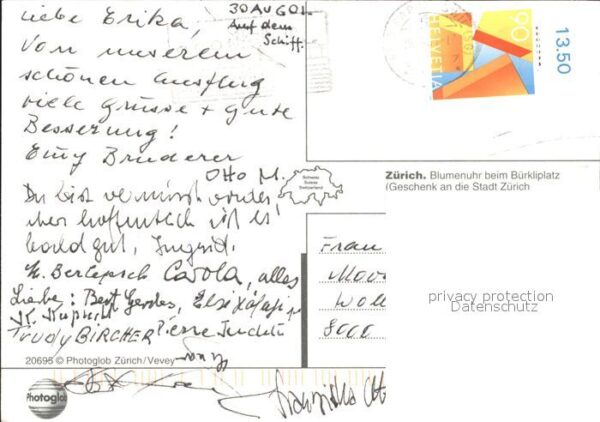 30 AUG 01.
Auf dem
Schiff.
Liebe Erika,
Von unserem
schönen Ausflug
viele Grüsse + gute
Besserung!
Emy Bruderer
Otto M.
Du bist vermisst worden,
aber hoffentlich ist es
bald gut, Ingrid.
Berlepsch Carola, alles
Liebe: Bert Gerdes,
K. Ruprecht
Trudy BIRCHER Pierre
20695 © Photoglob Zürich/Vevey
Photoglob
Schweiz
Suisse
Switzerland
90
HELVETIA
13.50
Zürich. Blumenuhr beim Bürkliplatz
(Geschenk an die Stadt Zürich
Frau
8000
privacy protection
Datenschutz